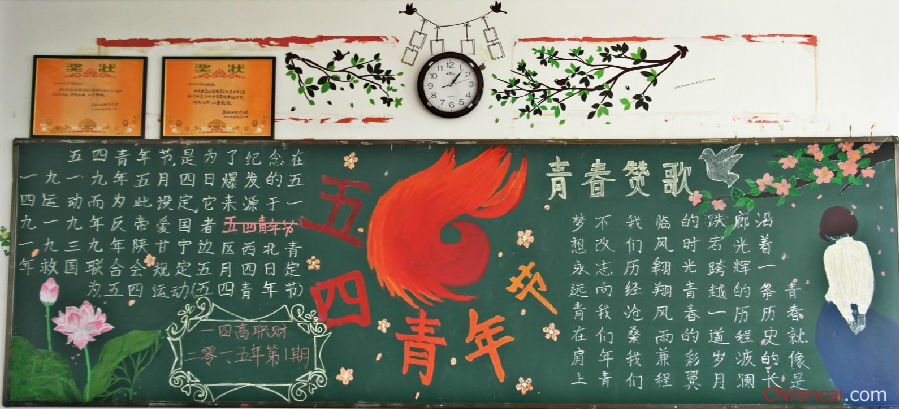 奖状
奖状
五四青年节是为了纪念在
一九一九年五月四日爆发的五
四运动而为此设定它来源于一
九一九年反帝爱国者五四青年节
一九三九年陕甘宁边区西北青
年救国联合会规定五月四日定
为五四运动(五四青年节)
一四高职财
二零一五年第1期
五四
青年节
青春赞歌
青春就像是
沿着一条历史的长
廊光辉的历程波澜
跌宕跨越一道岁月
的时光青春的彩翼
临风翱翔风雨兼程
我们历经沧桑我们
不改志向我们年青
梦想永远青在肩上
CNrencai.com